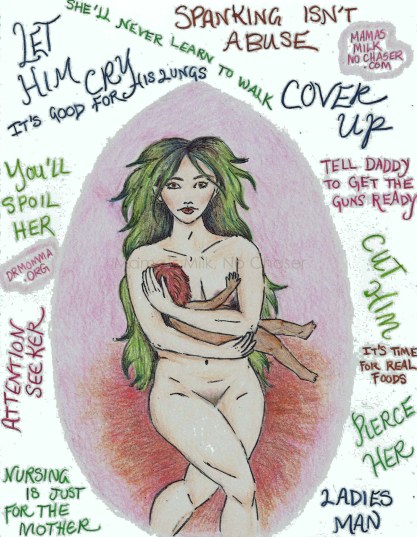 SHE'LL NEVER LEARN TO WALK
SPANKING ISN'T
ABUSE
MAMAS
MILK
NO CHASER
.COM
LET
HIM CRY
IT'S GOOD FOR HIS LUNGS
COVER
UP
YOU'LL
SPOIL
HER
TELL DADDY
TO GET THE
GUNS READY
DRMOMMA
.ORG
Mamas Milk, No Chaser
CUT HIM
ATTENTION
SEEKER
IT'S TIME
FOR REAL
FOODS
PIERCE
HER
NURSING
IS JUST
FOR THE
MOTHER
LADIES
MAN